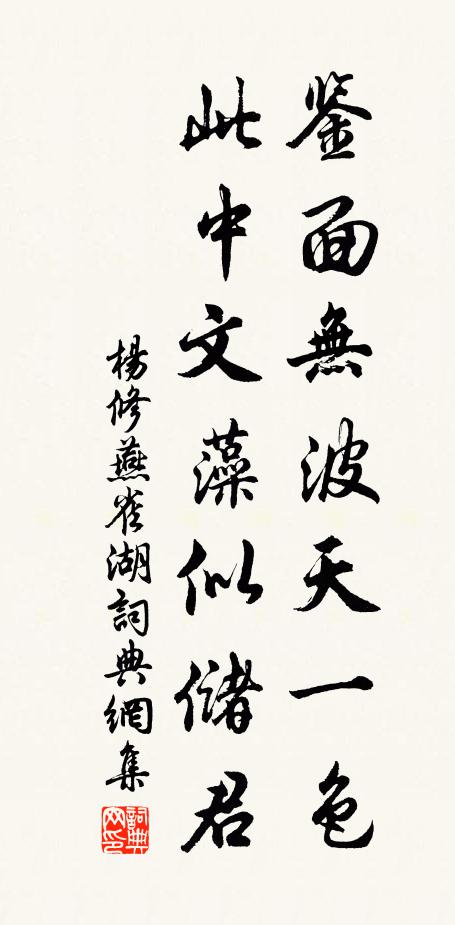 鉴面無波天一色
此中文藻似儲君
楊修燕雀湖詞典網集
詞典网印